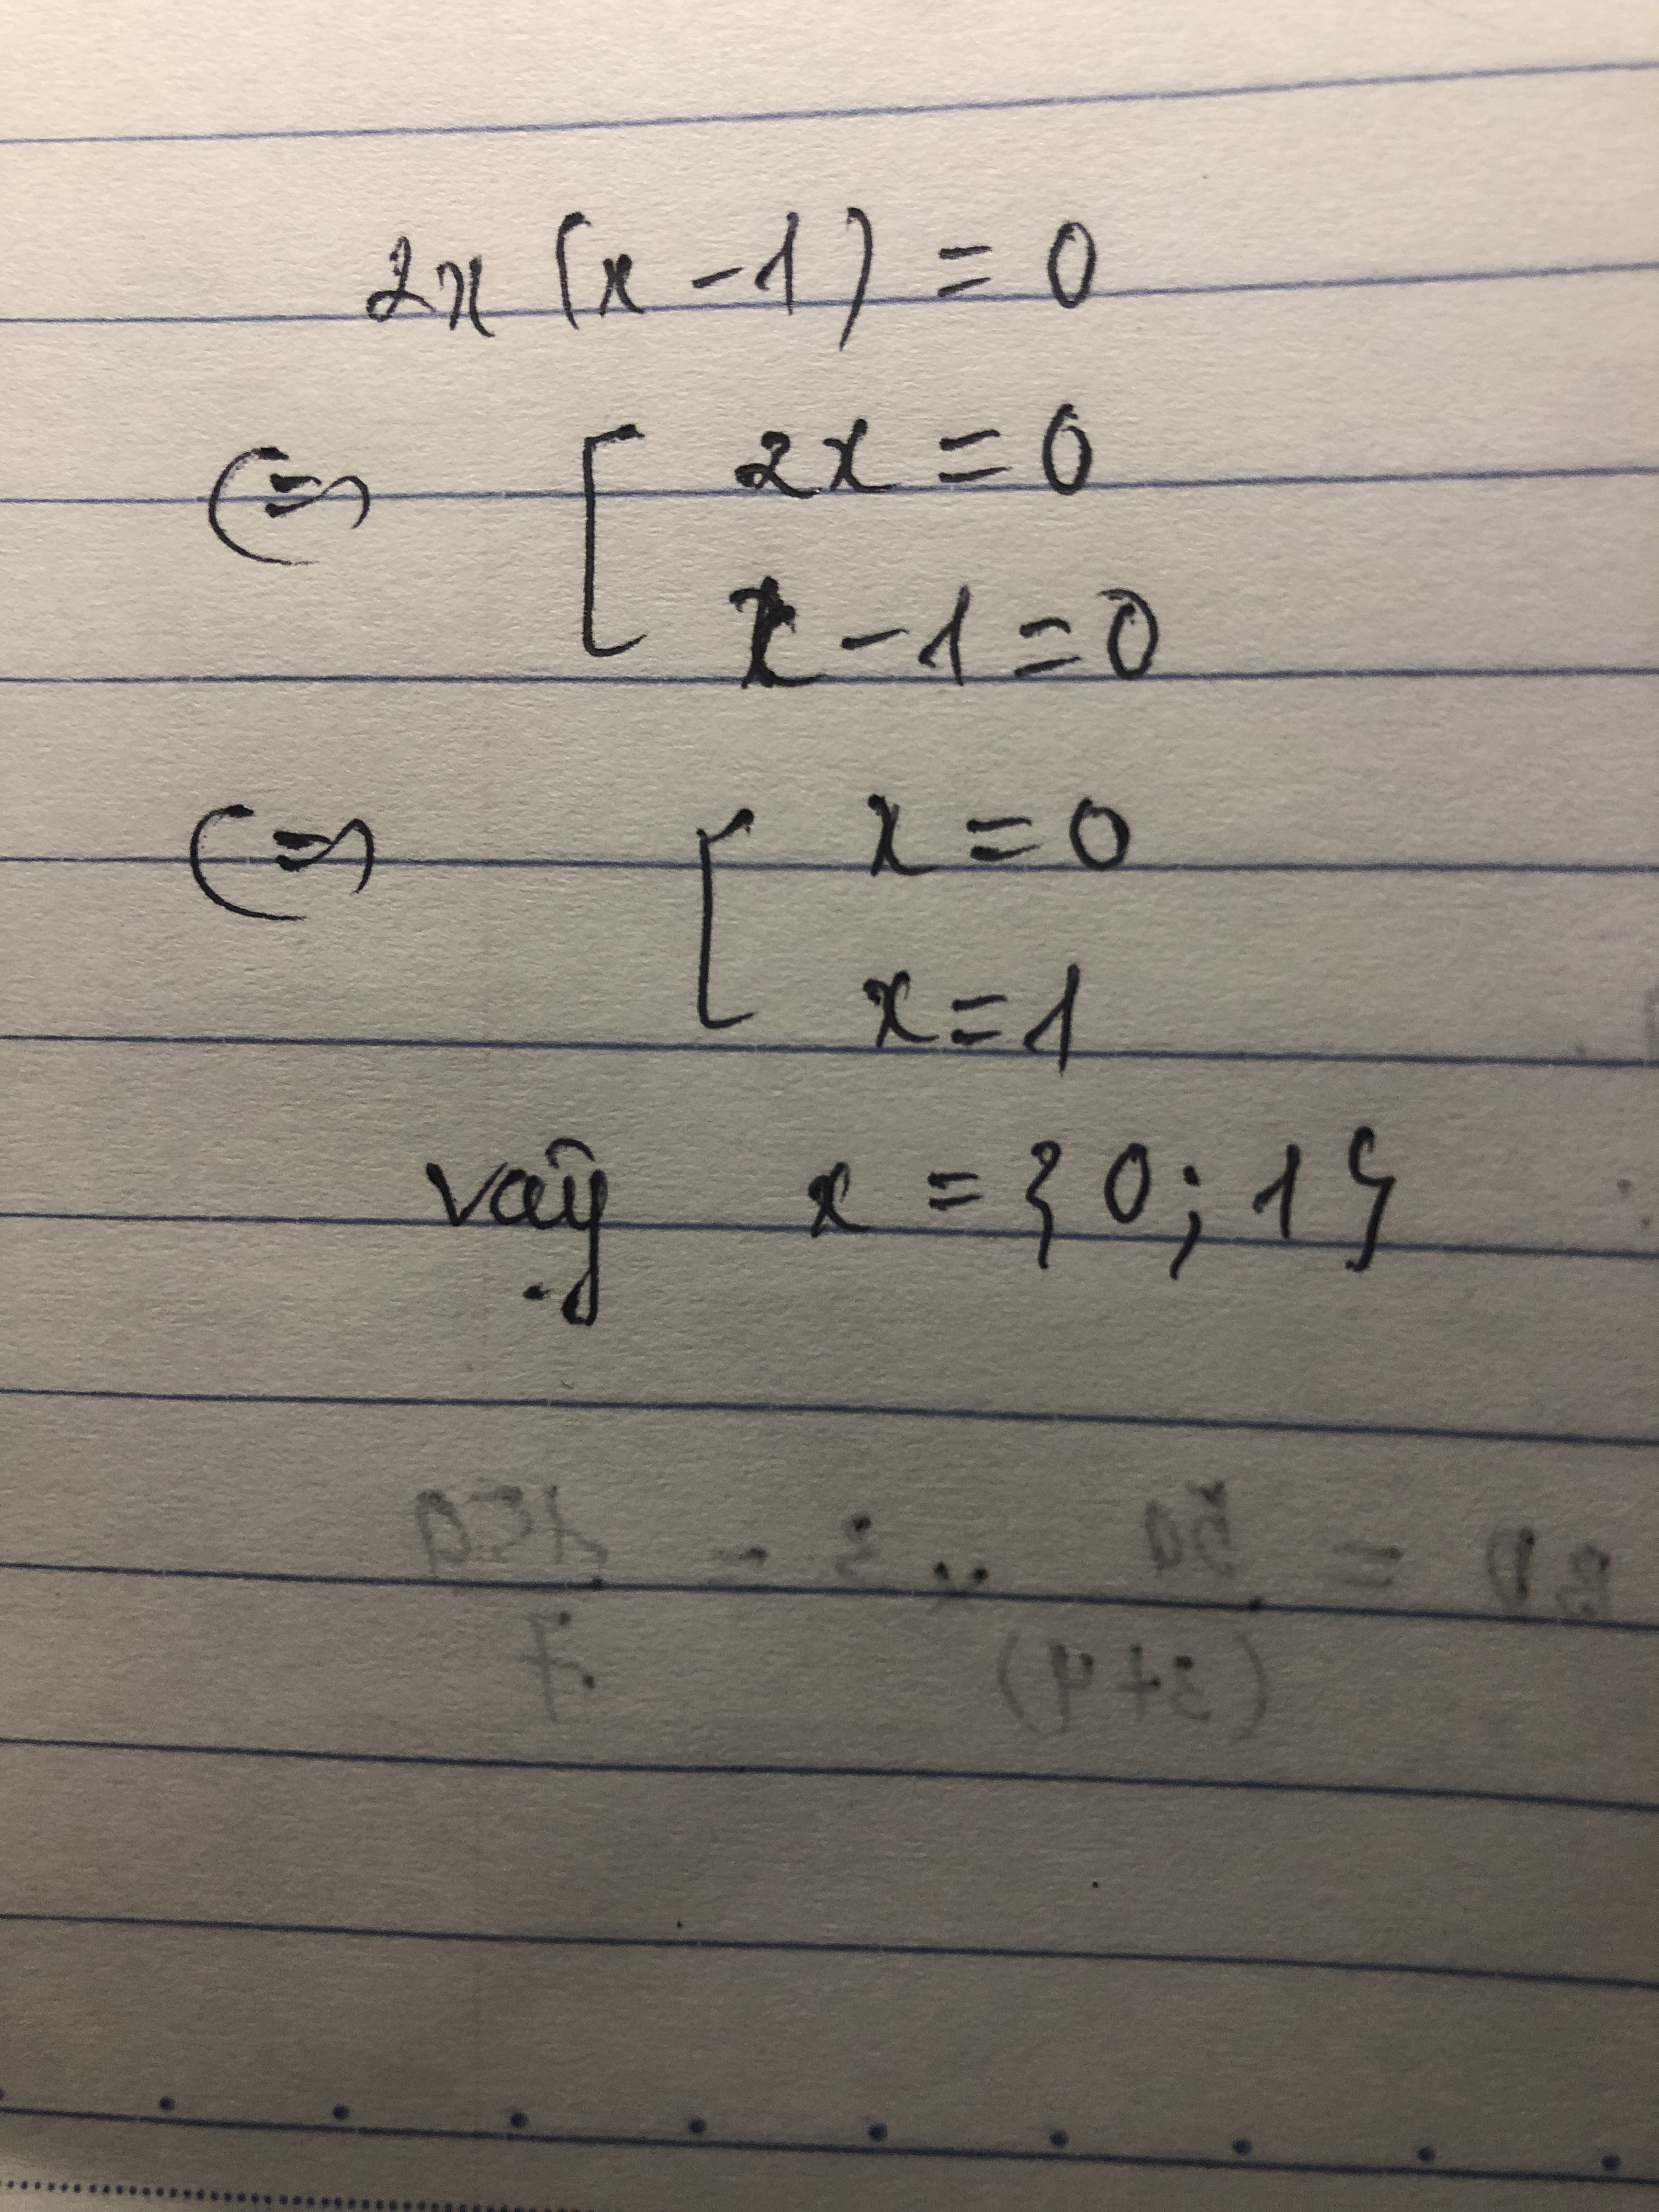 2x (x - 1) = 0
(=) [ 2x = 0
x - 1 = 0
(=) [ x = 0
x = 1
vậy x = { 0 ; 1 }